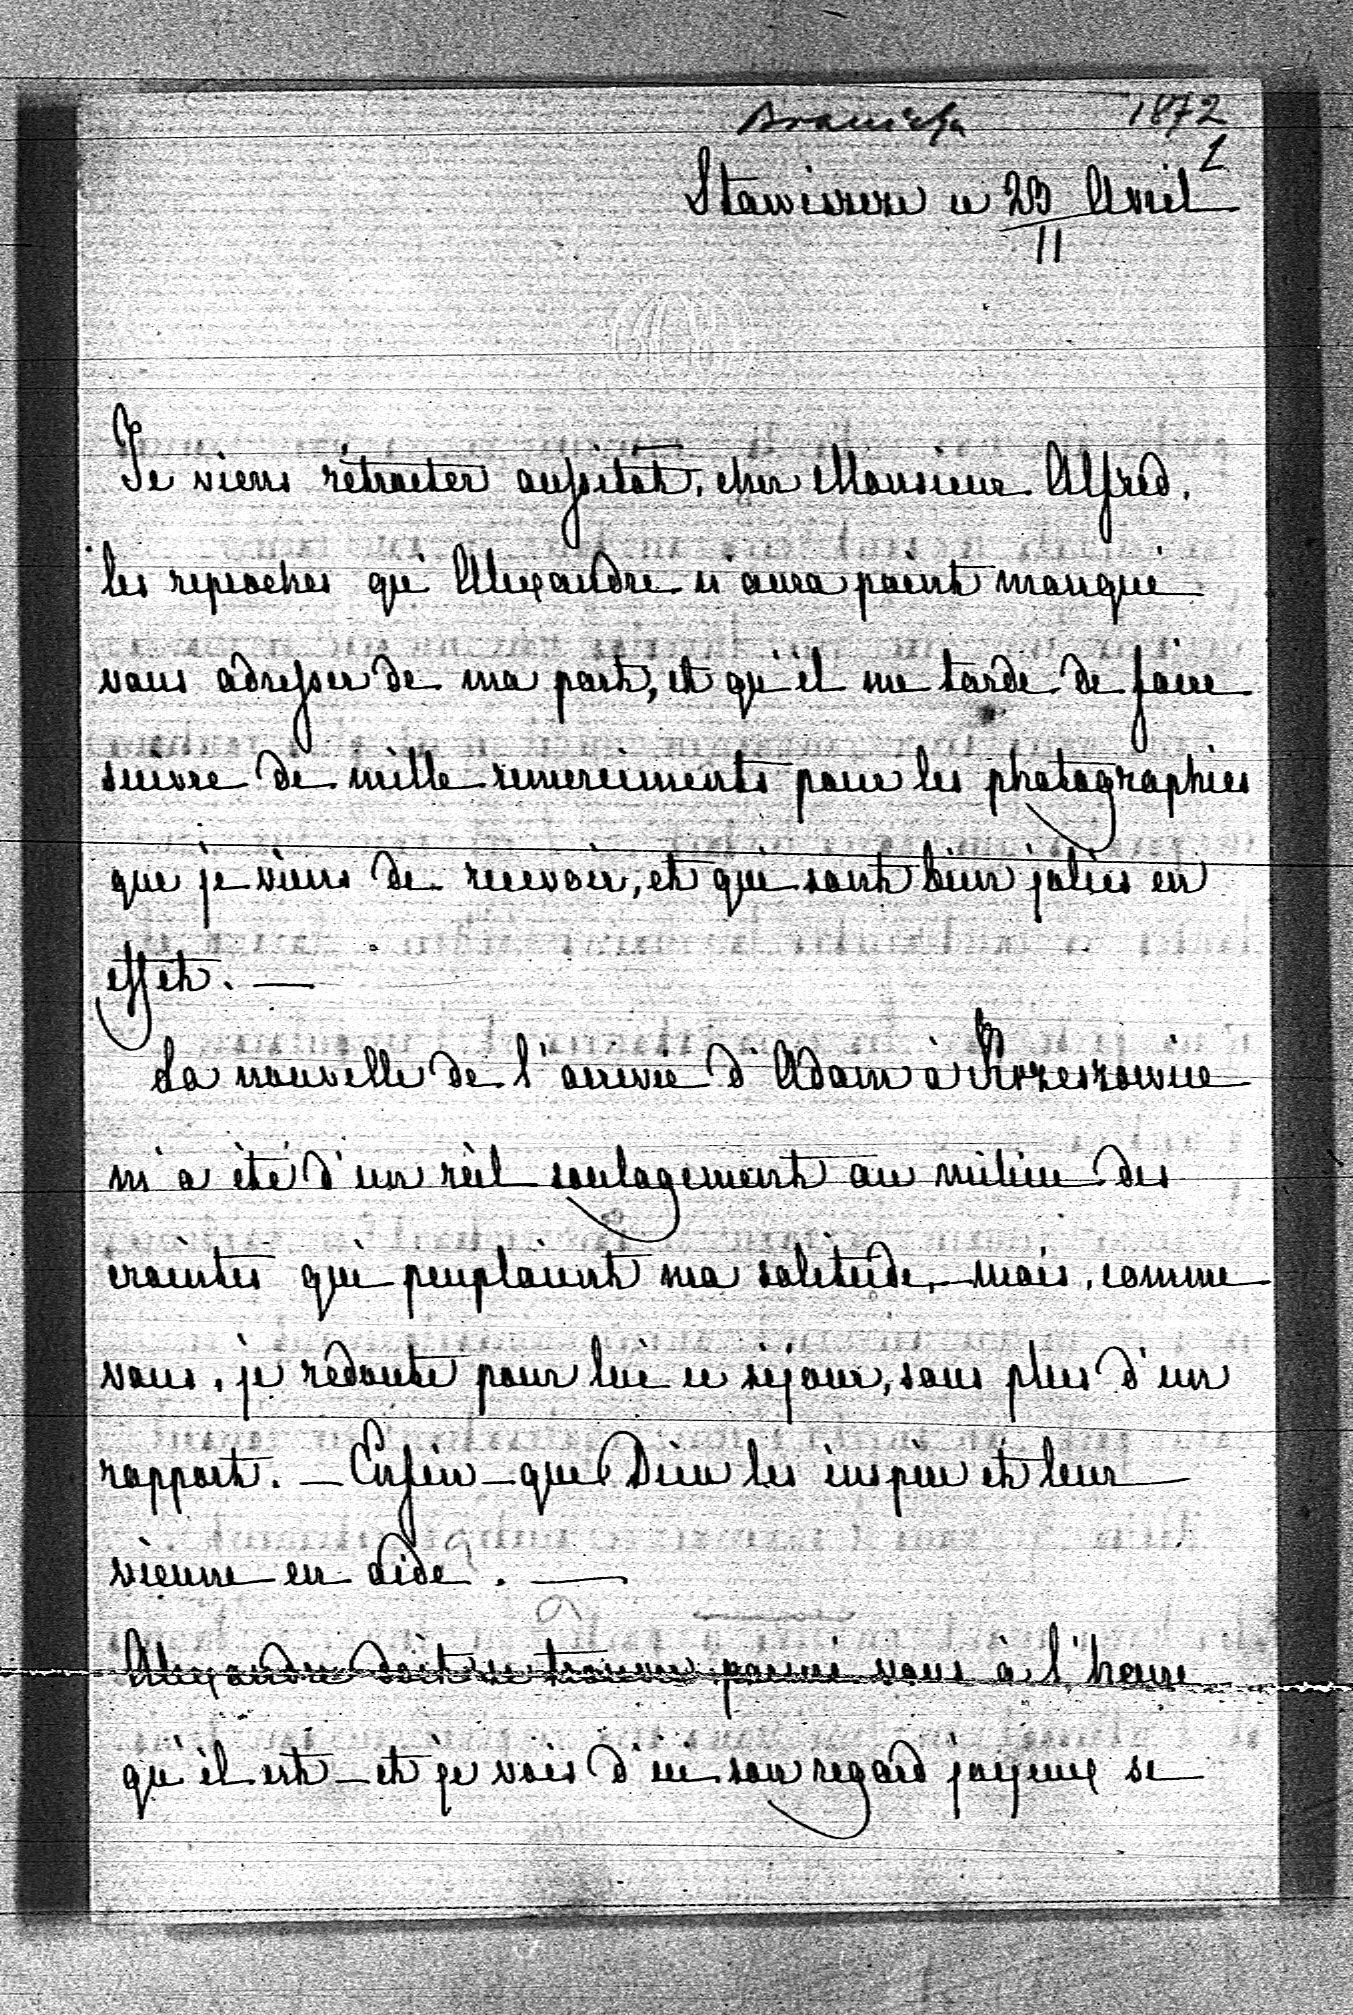 Branicka 1872
1
Stawiszcze ce 23 Avril
11
Je viens rétracter aussitôt, cher Monsieur Alfred,
les reproches qu'Alexandre n'aura point manqué
vous adresser de ma part, et qu'il me tarde de faire
suivre de mille remerciments pour les photographies
que je viens de recevoir, et qui sont bien jolies en
effet. —
La nouvelle de l'arrivée d'Adam à
m'a été d'un réel soulagement au milieu des
craintes qui peuplaient ma solitude, — mais, comme
vous, je redoute pour lui ce séjour, sous plus d'un
rapport. — Enfin — que Dieu les inspire et leur
vienne en aide. —
Alexandre doit se trouver parmi vous à l'heure
qu'il est — et je vois d'ici son regard joyeux se